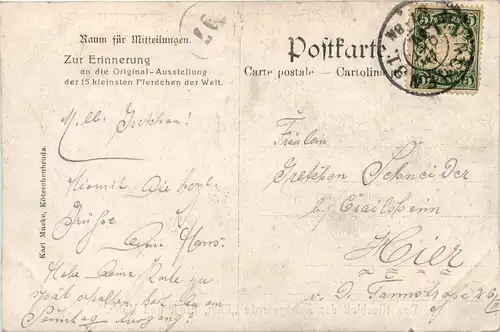 Raum für Mitteilungen.
Zur Erinnerung
an die Original-Ausstellung
der 15 kleinsten Pferdchen der Welt.
Karl Mücke, Kötzschenbroda.
Postkarte
Carte postale — Cartolina
5 BAYERN 5
L. Gretchen!
Hiemit Die
Grüße
Dein Hans.
Habe Deine Karte zu
spät erhalten, hast Du am
Sonntag Ausgang?
Fräulein
Gretchen Schneider
bei
Hier
v. D. Tannstraße 26/II